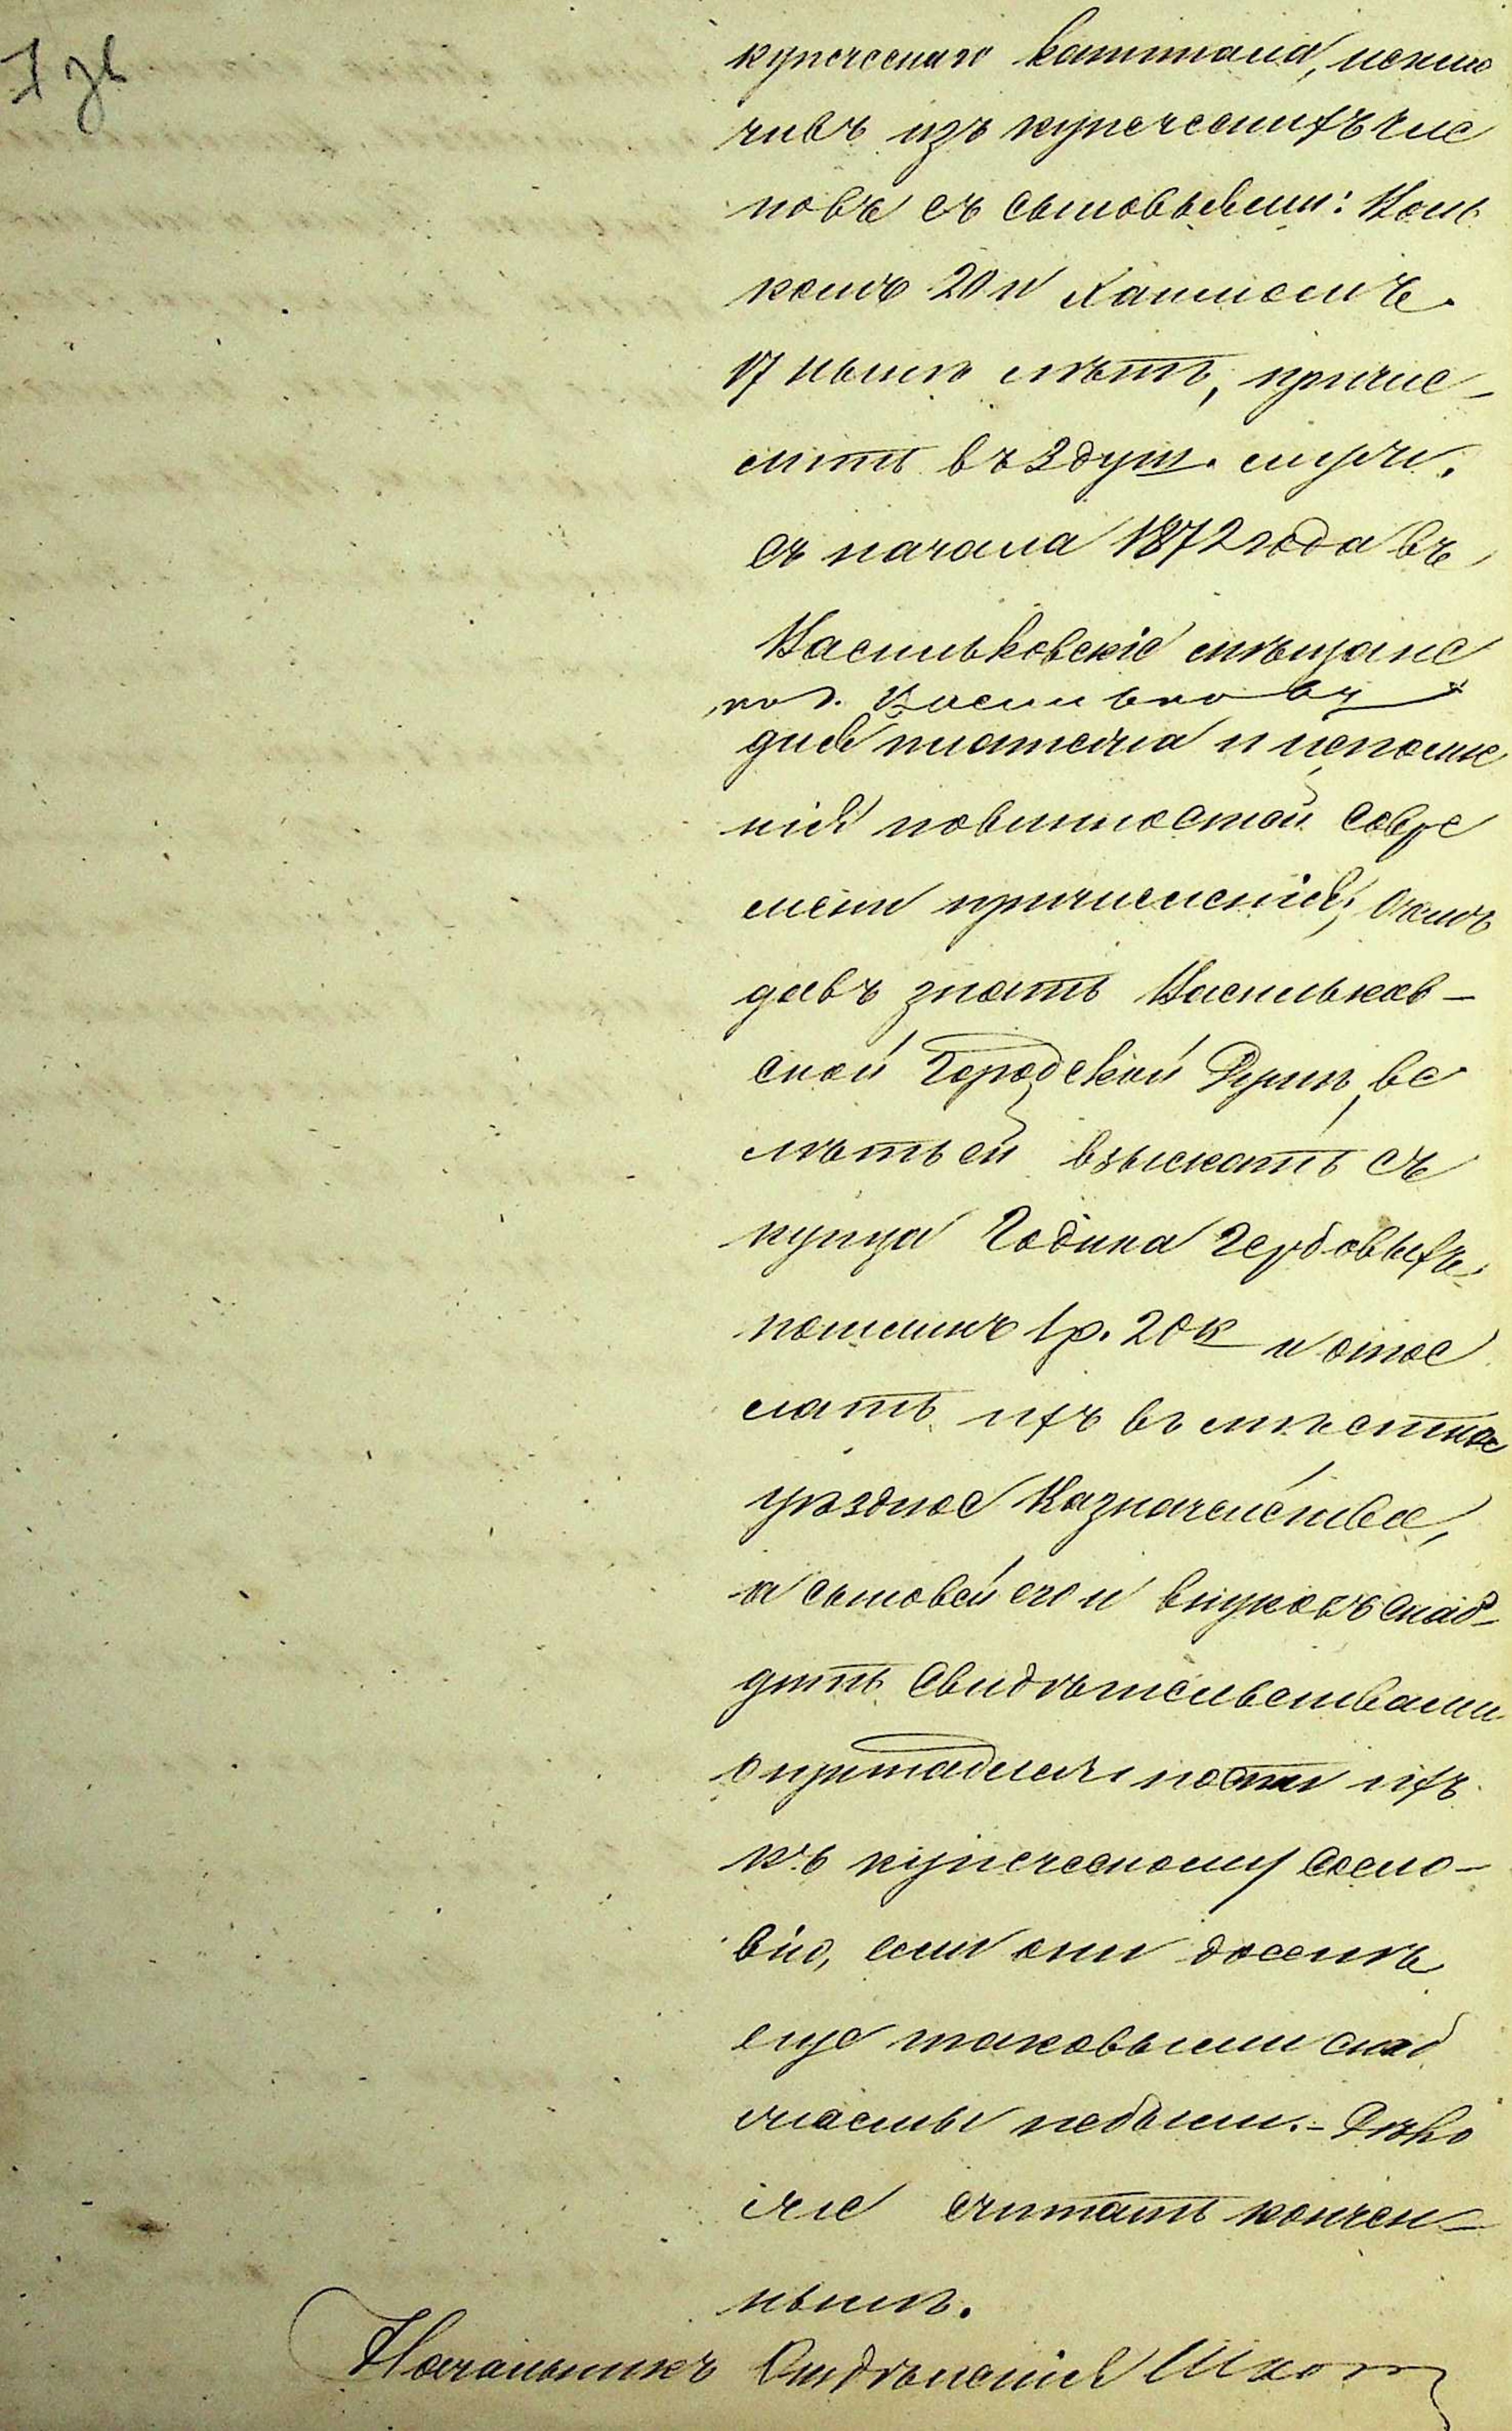 7 зв
купеческаго капитала, исклю
чивъ изъ купеческихъ чле
новъ съ сыновьями:
20 и Хаимомъ
17 лѣтъ, причис-
лить въ 3 душ. муж.
съ начала 1872 года въ
Васильковскіе мѣщане
по г. Василькову
для платежа и исполне
нія повинностей со вре
мени причисленія, о чемъ
давъ знать Васильков-
ской Городской Думѣ, ве
лѣть ей взыскать съ
купца Година гербовыхъ
пошлинъ 1 р. 20 к и отос
лать ихъ въ мѣстное
уѣздное Казначейство,
а сыновей его и внуковъ снаб-
дить свидѣтельствами
о принадлежности ихъ
къ купеческому сосло-
вію, если они доселѣ
еще таковыми снаб
жены небыли. - Дѣло
сіе считать кончен-
нымъ.
Начальникъ Отдѣленія